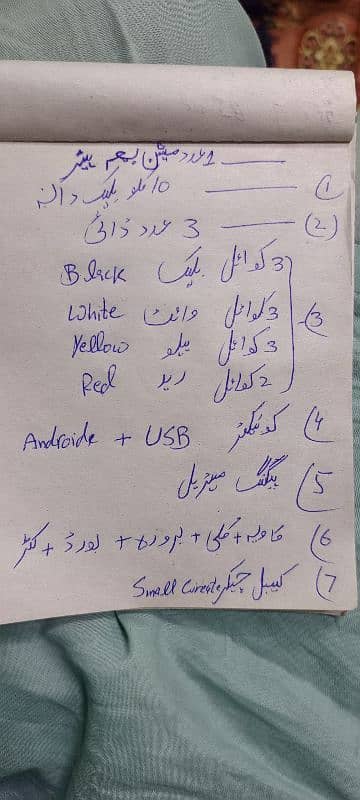 1 عدد مشین بمعہ ہیٹر
1) 10 کلو بلیک دانہ
2) 3 عدد ڈائی
3) 3 کوائل بلیک Black
3 کوائل وائٹ White
3 کوائل یلو Yellow
2 کوائل ریڈ Red
4) کونیکٹر Androide + USB
5) پیکنگ میٹریل
6) کاویہ + کلی + + بورڈ + کٹر
7) کیبل چیکر Small